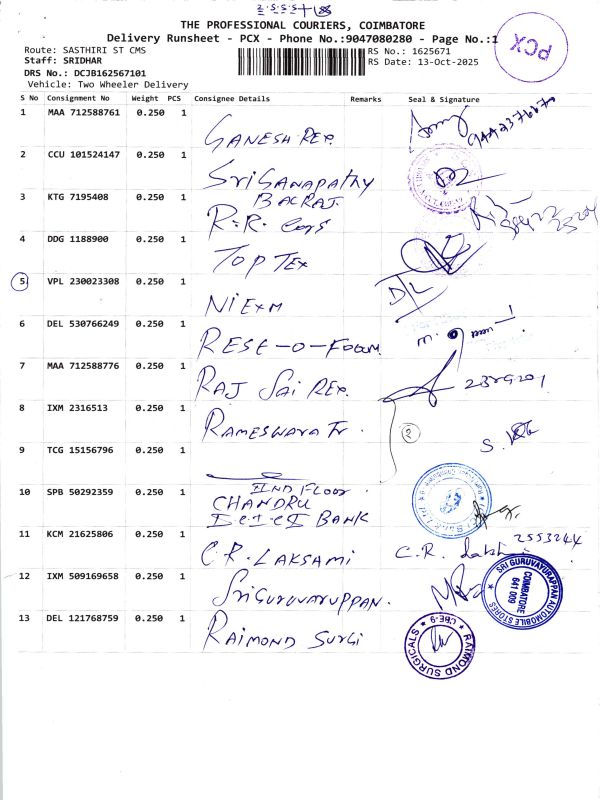 THE PROFESSIONAL COURIERS, COIMBATORE
Delivery Runsheet - PCX - Phone No.:9047080280 - Page No.:1
PCX
Route: SASTHIRI ST CMS
RS No.: 1625671
Staff: SRIDHAR
RS Date: 13-Oct-2025
DRS No.: DCJB162567101
Vehicle: Two Wheeler Delivery
S No Consignment No Weight PCS Consignee Details Remarks Seal & Signature
1 MAA 712588761 0.250 1 GANESH REP.
2 CCU 101524147 0.250 1 Sri GANAPATHY
3 KTG 7195408 0.250 1 R.R.
4 DDG 1188900 0.250 1 TOP TEX
5 VPL 230023308 0.250 1 NiExM
6 DEL 530766249 0.250 1 RESE-O-FOAM
7 MAA 712588776 0.250 1 RAJ SAI REP.
8 IXM 2316513 0.250 1 RAMESWARA Tr
9 TCG 15156796 0.250 1
IIND FLOOR
10 SPB 50292359 0.250 1 CHANDRU
I.C.I.C.I BANK
11 KCM 21625806 0.250 1 C.R. LAKSAMI C.R. 2553244
12 IXM 509169658 0.250 1 SRi GURUVAYUPPAN.
SRI GURUVAYURAPPAN AUTOMOBILE STORES
COIMBATORE
641 009
13 DEL 121768759 0.250 1 RAIMOND SURGI
RAIMOND SURGICALS
CBE-9